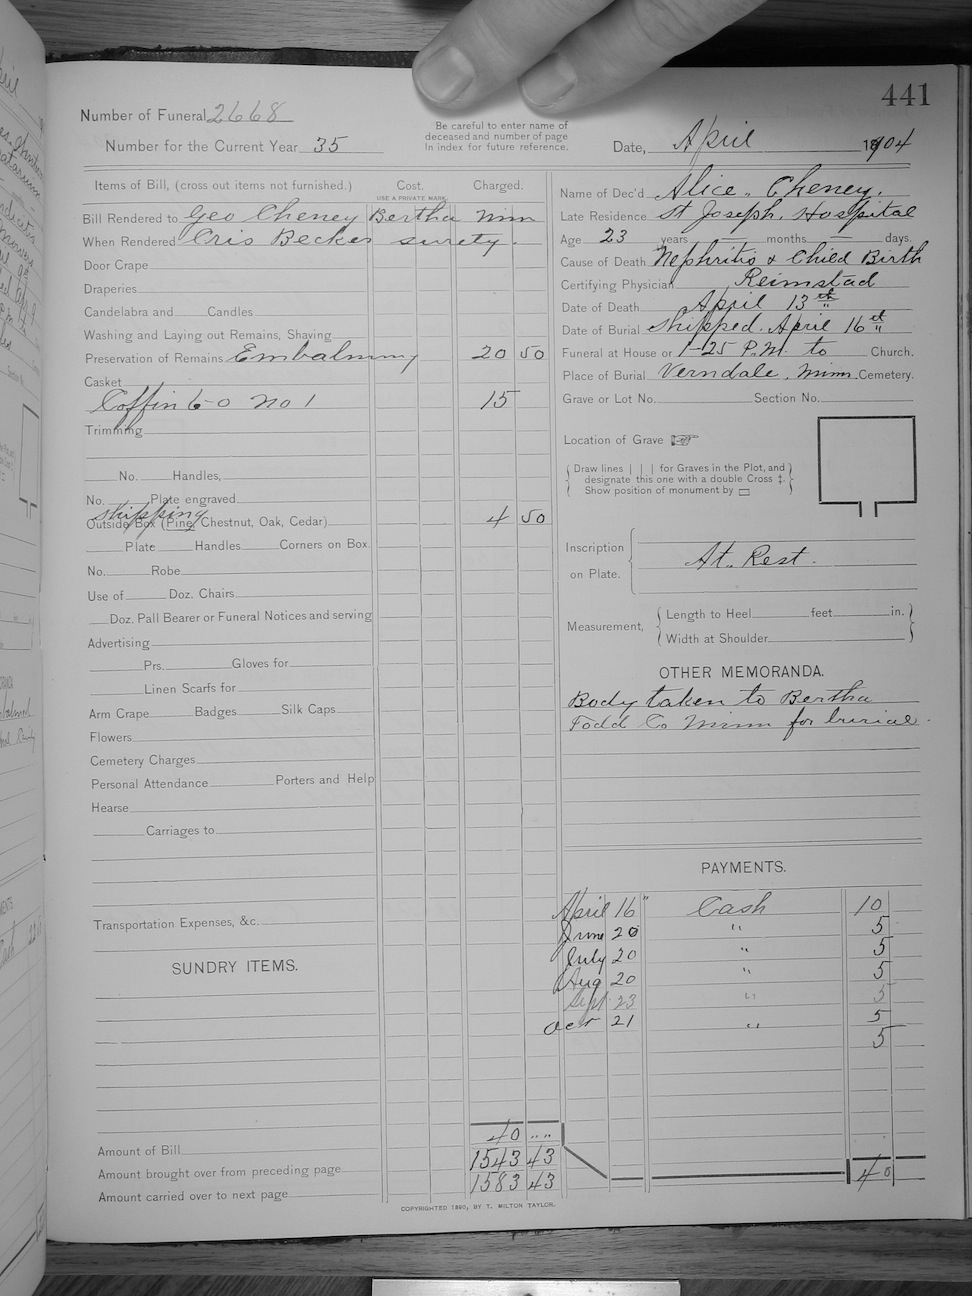 441
Number of Funeral 2668
Be careful to enter name of
deceased and number of page
In index for future reference.
Number for the Current Year 35
Date, April 1904
Items of Bill, (cross out items not furnished.) Cost. Charged.
USE A PRIVATE MARK.
Bill Rendered to Geo Cheney Bertha Minn
When Rendered Cris Becker surety.
Door Crape
Draperies
Candelabra and Candles
Washing and Laying out Remains, Shaving
Preservation of Remains Embalming 20 50
Casket
Coffin 6-0 No 1 15
Trimming
No. Handles,
No. Plate engraved
Shipping
Outside Box (Pine, Chestnut, Oak, Cedar) 4 50
Plate Handles Corners on Box
No. Robe
Use of Doz. Chairs
Doz. Pall Bearer or Funeral Notices and serving
Advertising
Prs. Gloves for
Linen Scarfs for
Arm Crape Badges Silk Caps
Flowers
Cemetery Charges
Personal Attendance Porters and Help
Hearse
Carriages to
Transportation Expenses, &c.
SUNDRY ITEMS.
Amount of Bill 40 " "
Amount brought over from preceding page 1543 43
Amount carried over to next page 1583 43
Name of Dec'd Alice. Cheney.
Late Residence St Joseph. Hospital
Age 23 years — months — days.
Cause of Death Nephritis & Child Birth
Certifying Physician Reimstad
Date of Death April 13th
Date of Burial Shipped. April 16th
Funeral at House or 1-25 P.M. to Church.
Place of Burial Verndale, Minn. Cemetery.
Grave or Lot No. Section No.
Location of Grave
Draw lines | | | for Graves in the Plot, and
designate this one with a double Cross ‡.
Show position of monument by
Inscription
on Plate.
At. Rest.
Measurement,
Length to Heel feet in.
Width at Shoulder
OTHER MEMORANDA.
Body taken to Bertha
Todd Co Minn for burial.
PAYMENTS.
April 16 " Cash 10
June 20 " 5
July 20 " 5
Aug 20 " 5
Sept 23 " 5
Oct 21 " 5
5
40
COPYRIGHTED 1890, BY T. MILTON TAYLOR.